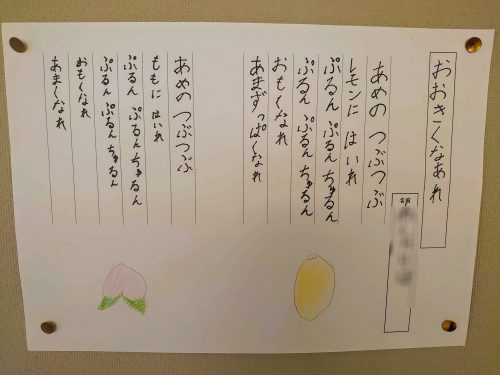 おおきくなあれ
あめの つぶつぶ
レモンに はいれ
ぷるん ぷるん ちゅるん
ぷるん ぷるん ちゅるん
おもくなれ
あまずっぱくなれ
あめの つぶつぶ
ももに はいれ
ぷるん ぷるんちゅるん
ぷるん ぷるん ちゅるん
おもくなれ
あまくなれ